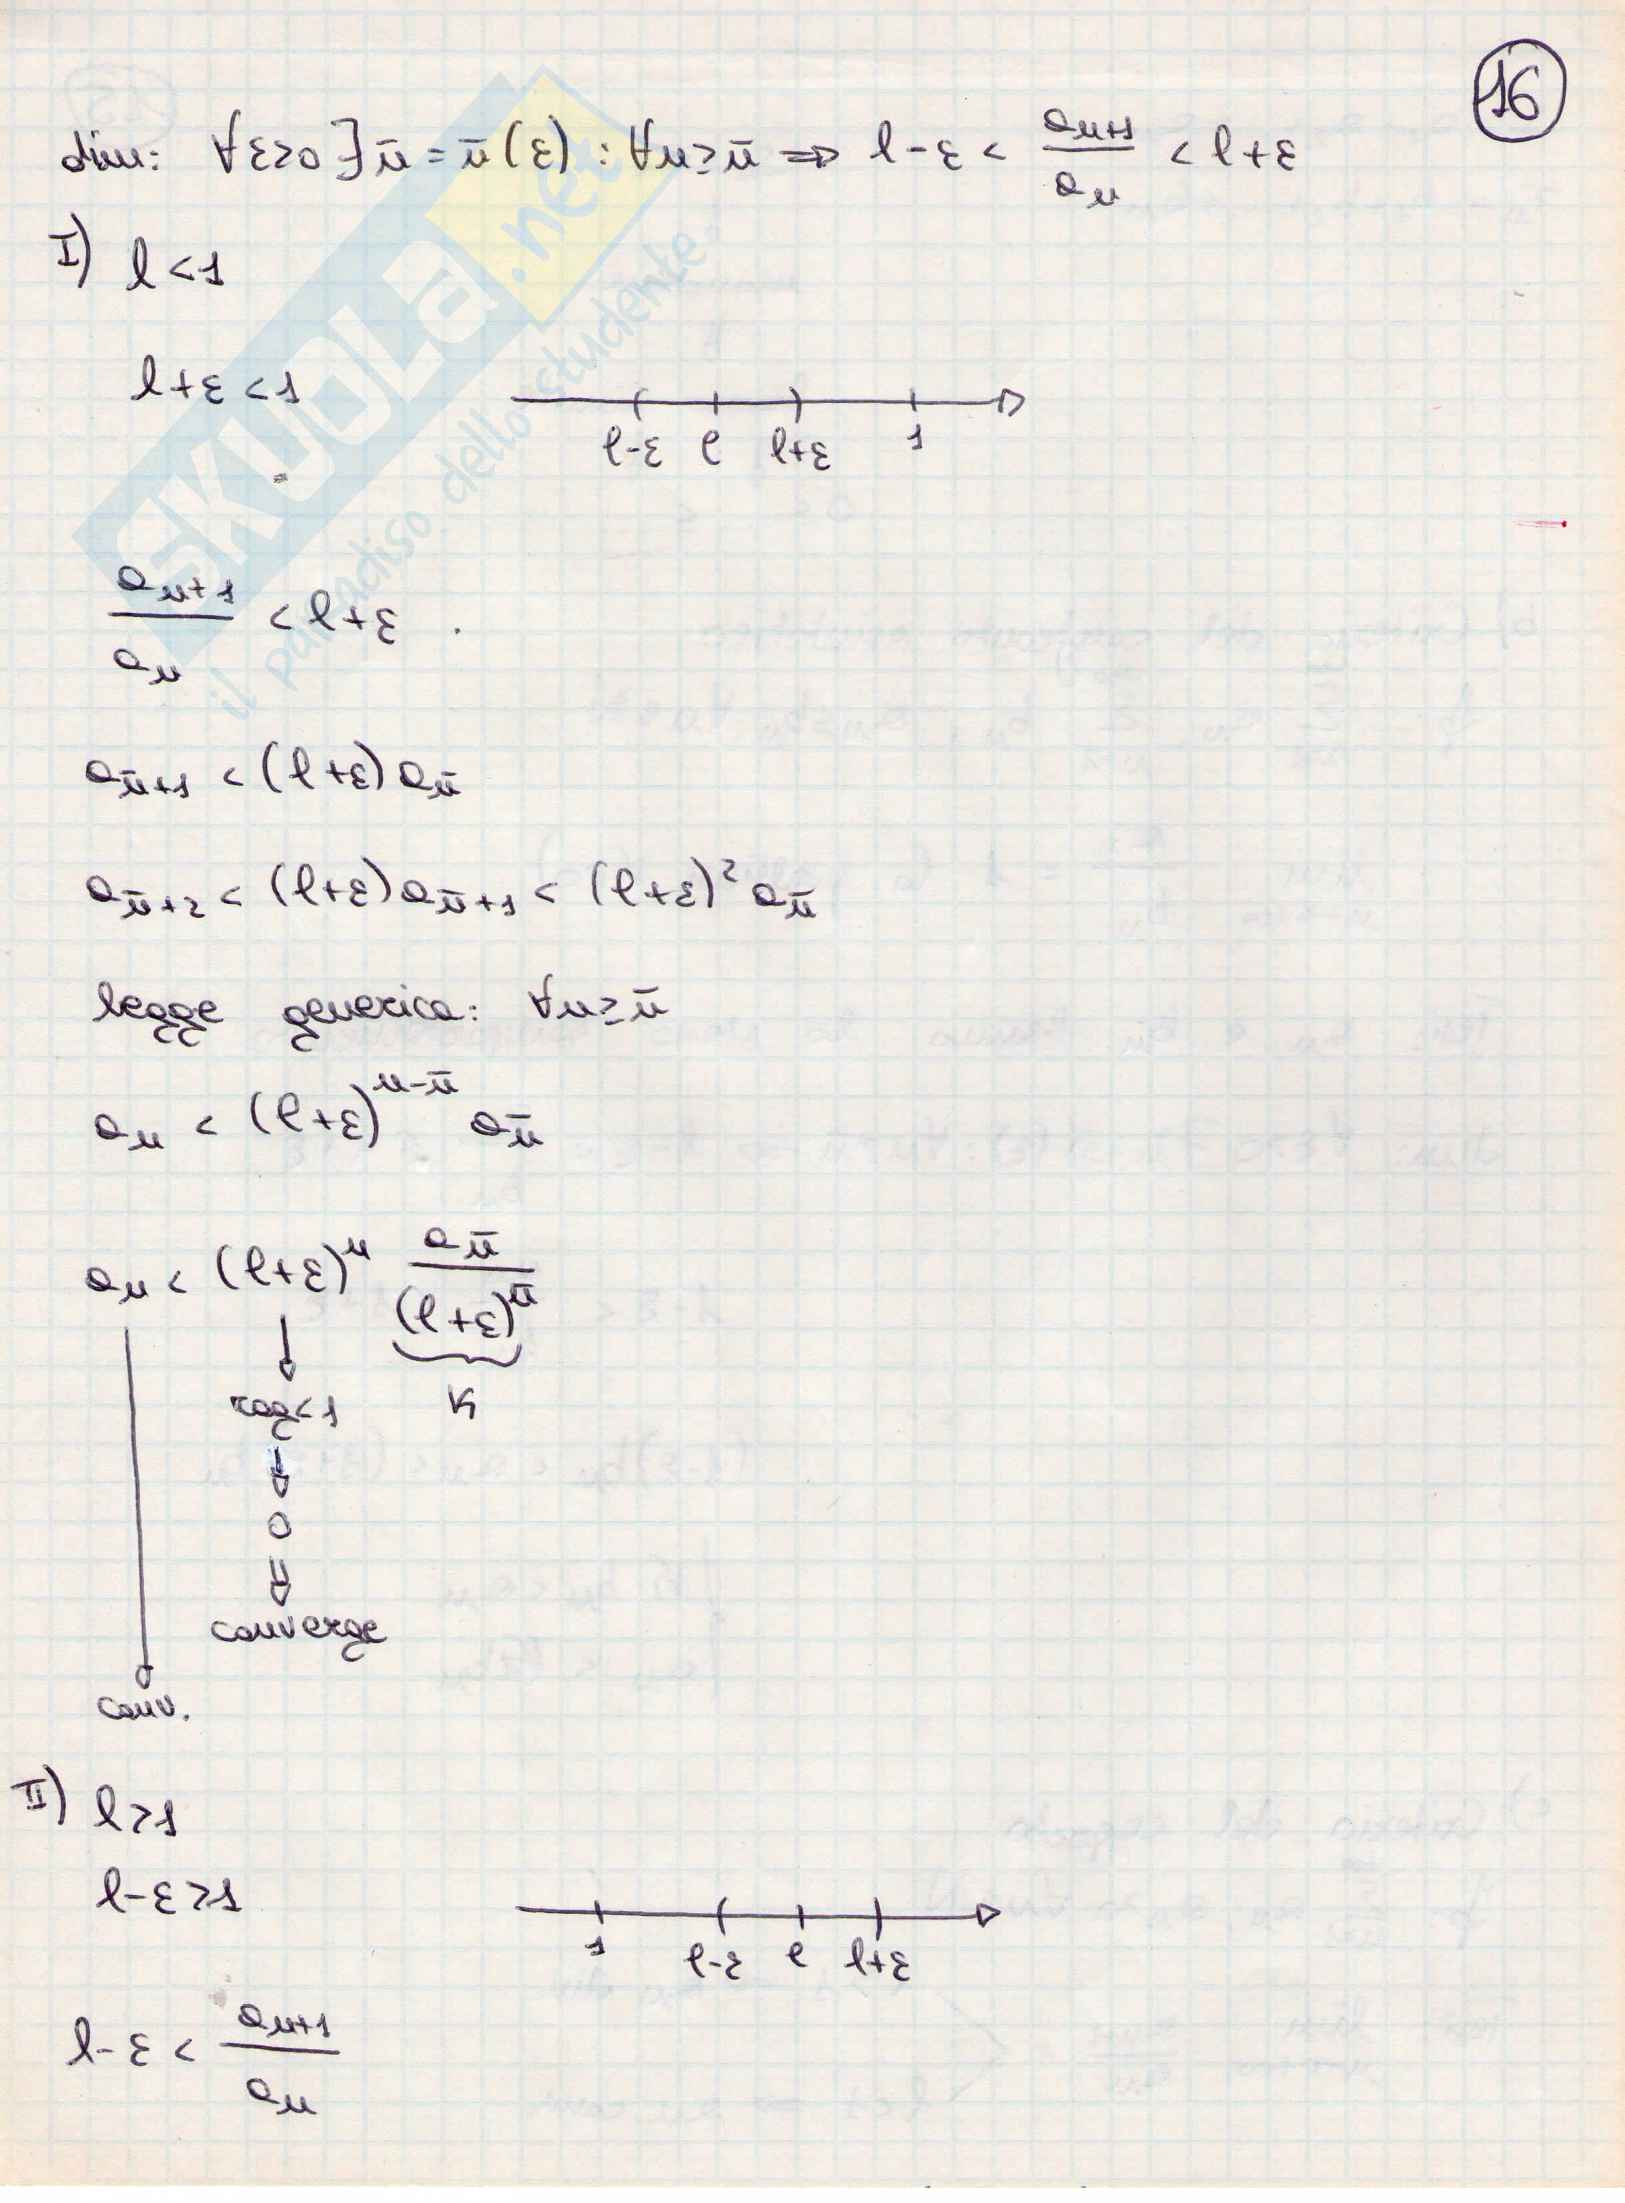 16
dim: ∀ε>0 ∃ n̄ = n̄(ε) : ∀n≥n̄ ⇒ l-ε < a_{n+1}/a_n < l+ε
I) l<1
l+ε<1
l-ε l l+ε 1
a_{n+1}/a_n < l+ε .
a_{n̄+1} < (l+ε) a_{n̄}
a_{n̄+2} < (l+ε) a_{n̄+1} < (l+ε)² a_{n̄}
legge generica: ∀n≥n̄
a_n < (l+ε)^{n-n̄} a_{n̄}
a_n < (l+ε)^n a_{n̄}/(l+ε)^{n̄}
↓
rag<1 K
↓
0
⇓
converge
conv.
II) l>1
l-ε>1
1 l-ε l l+ε
l-ε < a_{n+1}/a_n
SKUOLA.net
il paradiso dello studente